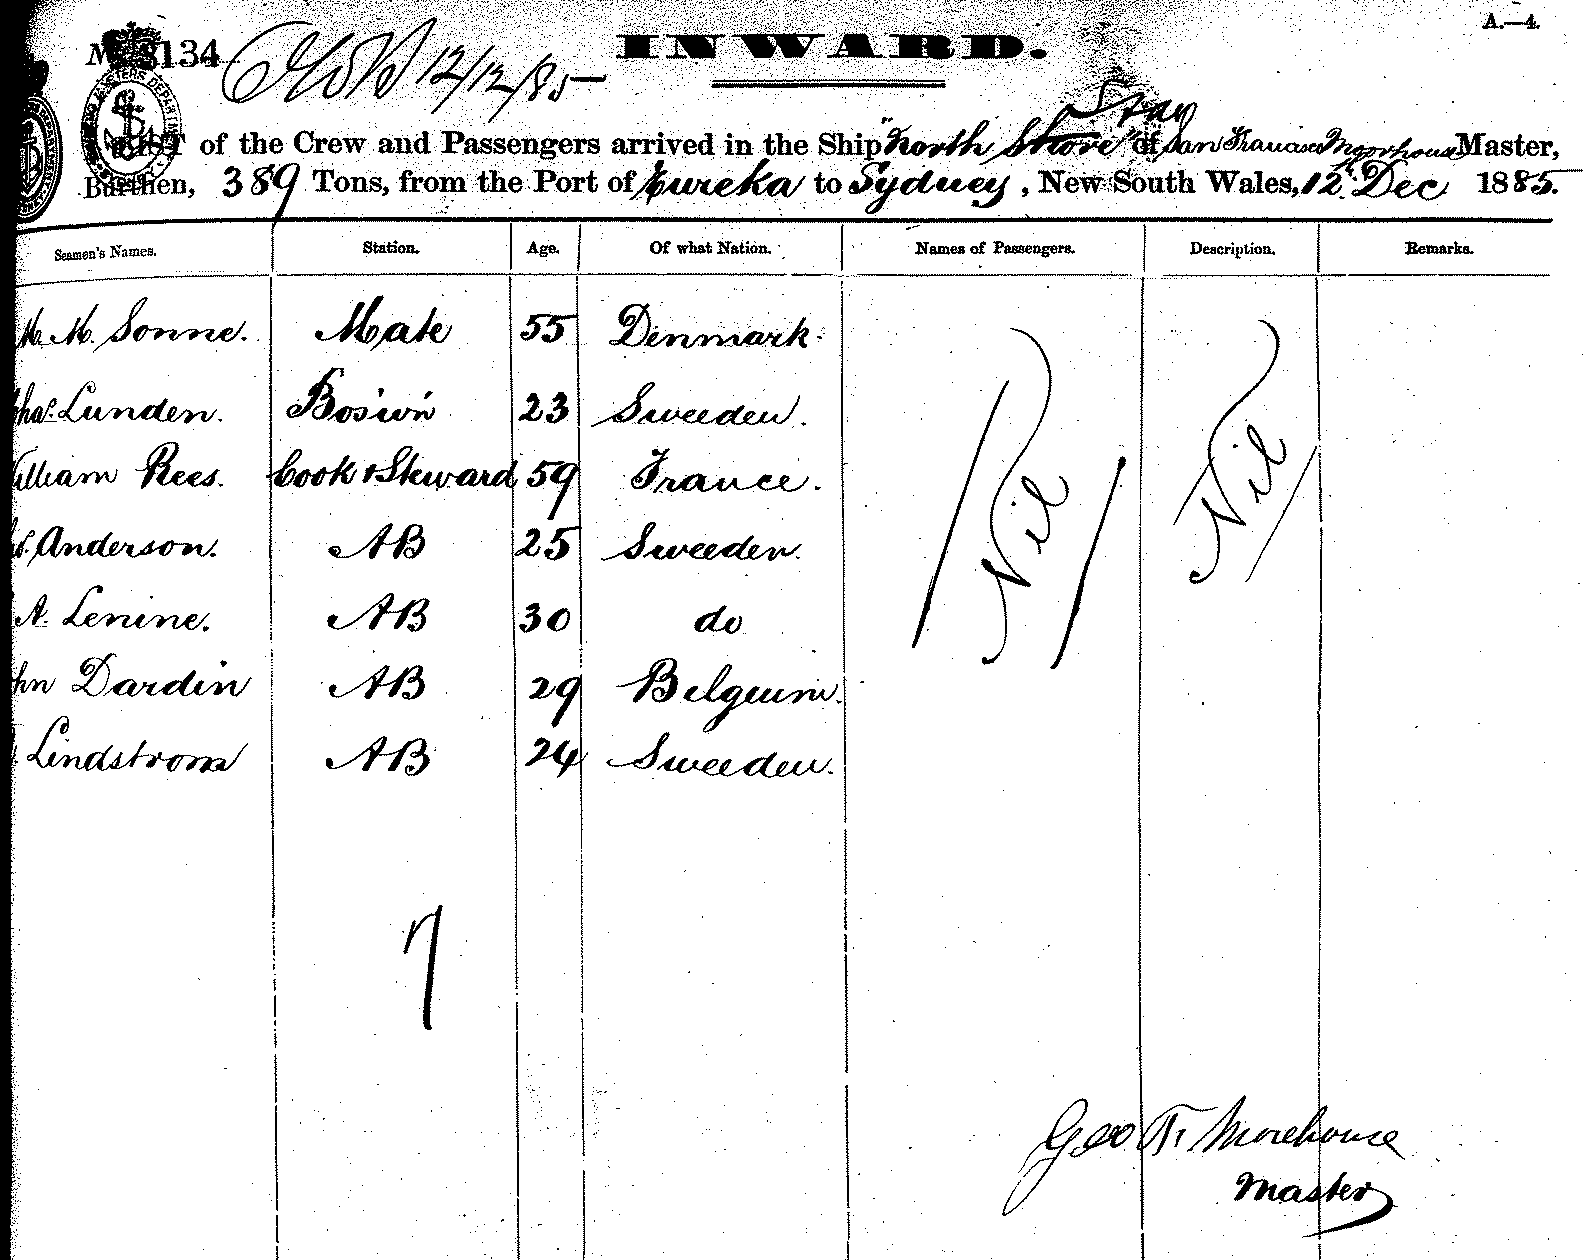 A.—4.
No. 3134 12/12/85
INWARD.
Star
LIST of the Crew and Passengers arrived in the Ship "North Shore" of San Francisco Moorhouse Master,
Burthen, 389 Tons, from the Port of Eureka to Sydney, New South Wales, 12th Dec 1885.
Seamen's Names. Station. Age. Of what Nation. Names of Passengers. Description. Remarks.
M. M. Sonne. Mate 55 Denmark.
Chas. Lunden. Bos'w'n 23 Sweeden.
William Rees. Cook & Steward 59 France.
Anderson. AB 25 Sweeden.
A. Lenine. AB 30 do
John Dardin AB 29 Belgeium.
Lindstrom AB 24 Sweeden.
Nil Nil
7
Geo Morehouse
Master